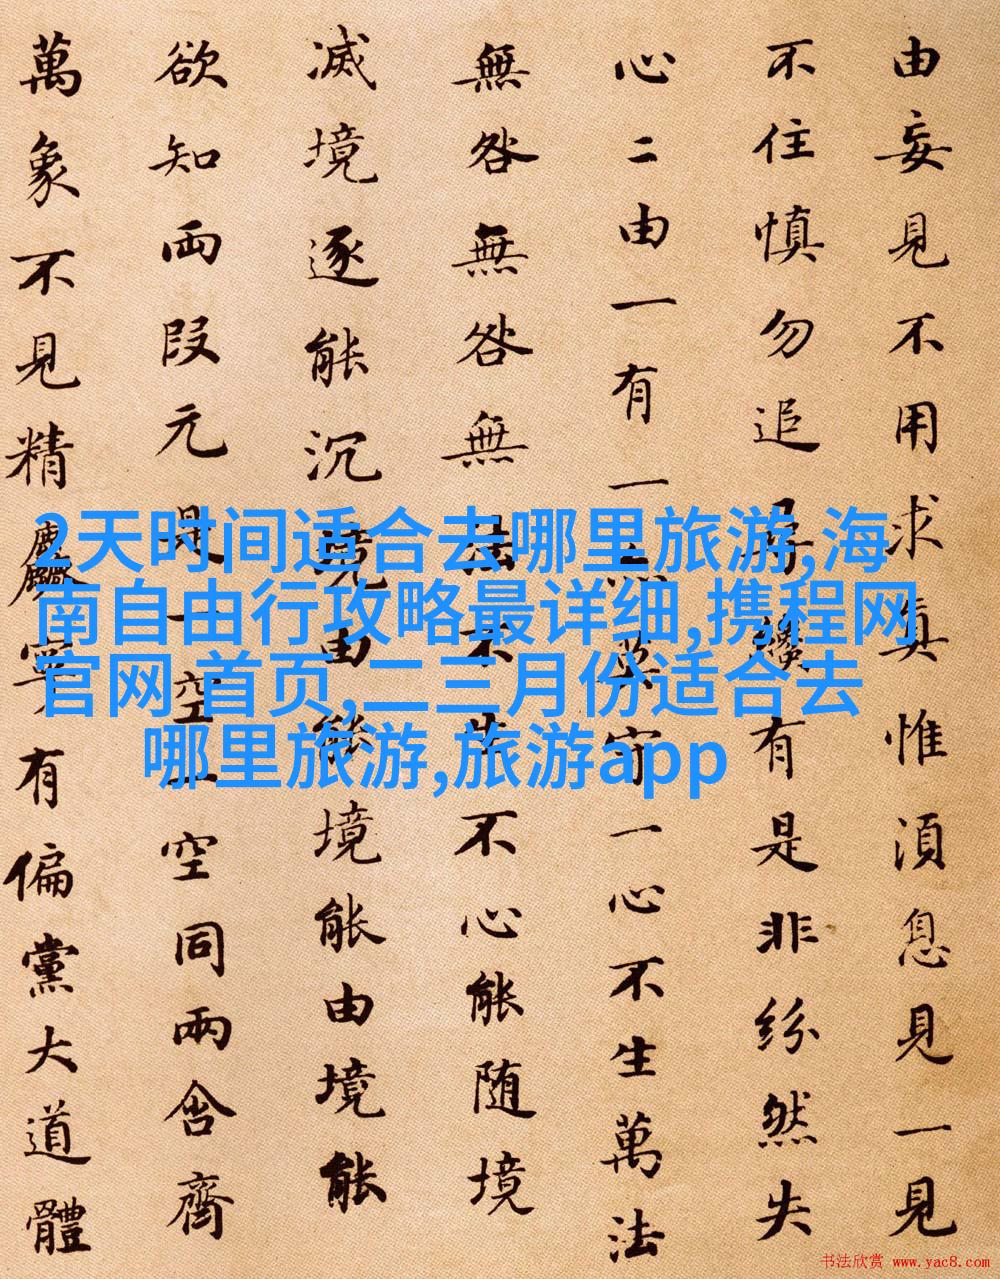 由妄見不用求真惟湏息見一見
不住慎勿追尋纔有是非紛然失
心二由一有一亦莫守一心不生萬法
無咎無咎無法不生不心能随境
滅境逐能沉境由能境能由境能
欲知両段元是一空一空同兩含齊
萬象不見精麤寧有偏黨大道體
2天时间适合去哪里旅游,海
南自由行攻略最详细,携程网
官网 首页,二三月份适合去
哪里旅游,旅游app
书法欣赏 www.yac8.com